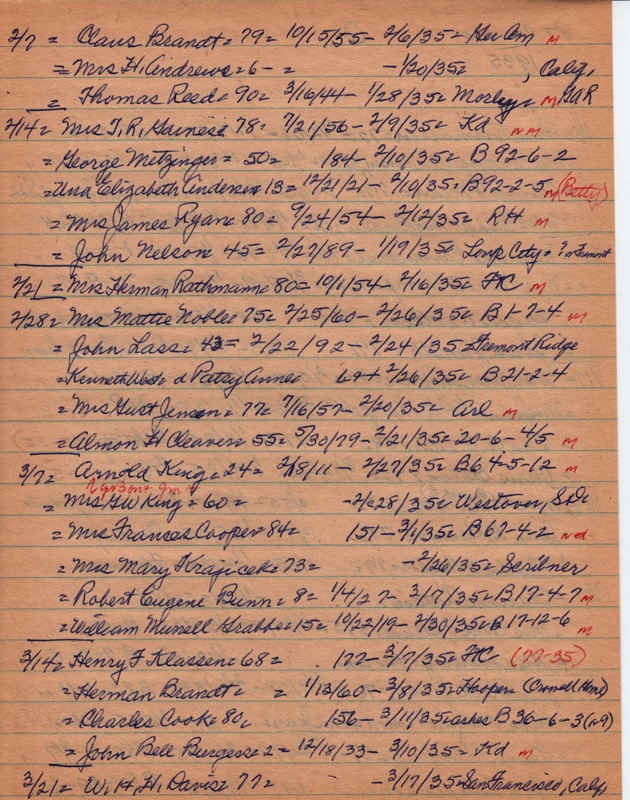 2/7 = Claus Brandt = 79 = 10/15/55 - 2/6/35 = Ger Cem M
= Mrs H. Andrews = 6- = - 1/20/35 = , Calif.
= Thomas Reed = 90 = 3/16/44 - 1/28/35 = Morley = M GAR
2/14 = Mrs T. R. Gaines = 78 = 7/21/56 - 2/9/35 = Kd nm
= George Metzinger = 50 = 184 - 2/10/35 = B 92-6-2
= Una Elizabeth Andersen 13 = 12/21/21 - 2/10/35 = B92-2-5 M (Betty)
= Mrs James Ryan = 80 = 9/24/54 - 2/12/35 = RH M
= John Nelson = 45 = 2/27/89 - 1/19/35 = Loup City = ? or Fremont
2/21 = Mrs Herman Rathmann = 80 = 10/1/54 - 2/16/35 = FC M
2/28 = Mrs Mattie Noble = 75 = 2/25/60 - 2/26/35 = B1-7-4 M
= John Lass = 43 = 2/22/92 - 2/24/35 = Fremont Ridge
= Kenneth West = d Patsy Anne = 2/26/35 = B21-2-4
= Mrs Gust Jensen = 77 = 7/16/57 - 2/20/35 = Arl M
= Almon H Cleaver = 55 = 5/30/79 - 2/21/35 = 20-6-4/5 M
3/7 = Arnold King = 24 = 2/8/11 - 2/27/35 = B64-5-12 M
= Mrs GW King = 60 = - 2/28/35 = Westover, S.D.
= Mrs Frances Cooper = 84 = 151 - 3/1/35 = B67-4-2 nd
= Mrs Mary Krajicek = 73 = - 2/26/35 = Scribner
= Robert Eugene Bunn = 8 = 1/4/27 - 3/7/35 = B17-4-7 M
= William Murrell Grabbe = 15 = 10/22/19 - 2/30/35 = B 17-12-6 M
3/14 = Henry F Klassen = 68 = 177 - 3/7/35 = FC (77-35)
= Herman Brandt = = 1/13/60 - 3/8/35 = Hooper (Crowell Home)
= Charles Cook = 80 = 156 - 3/11/35 = ashes B36-6-3 (n9)
= John Bell Burgess = 2 = 12/18/33 - 3/10/35 = Kd M
3/21 = W. H. H. Davis = 77 = - 3/17/35 = San Francisco, Calif.